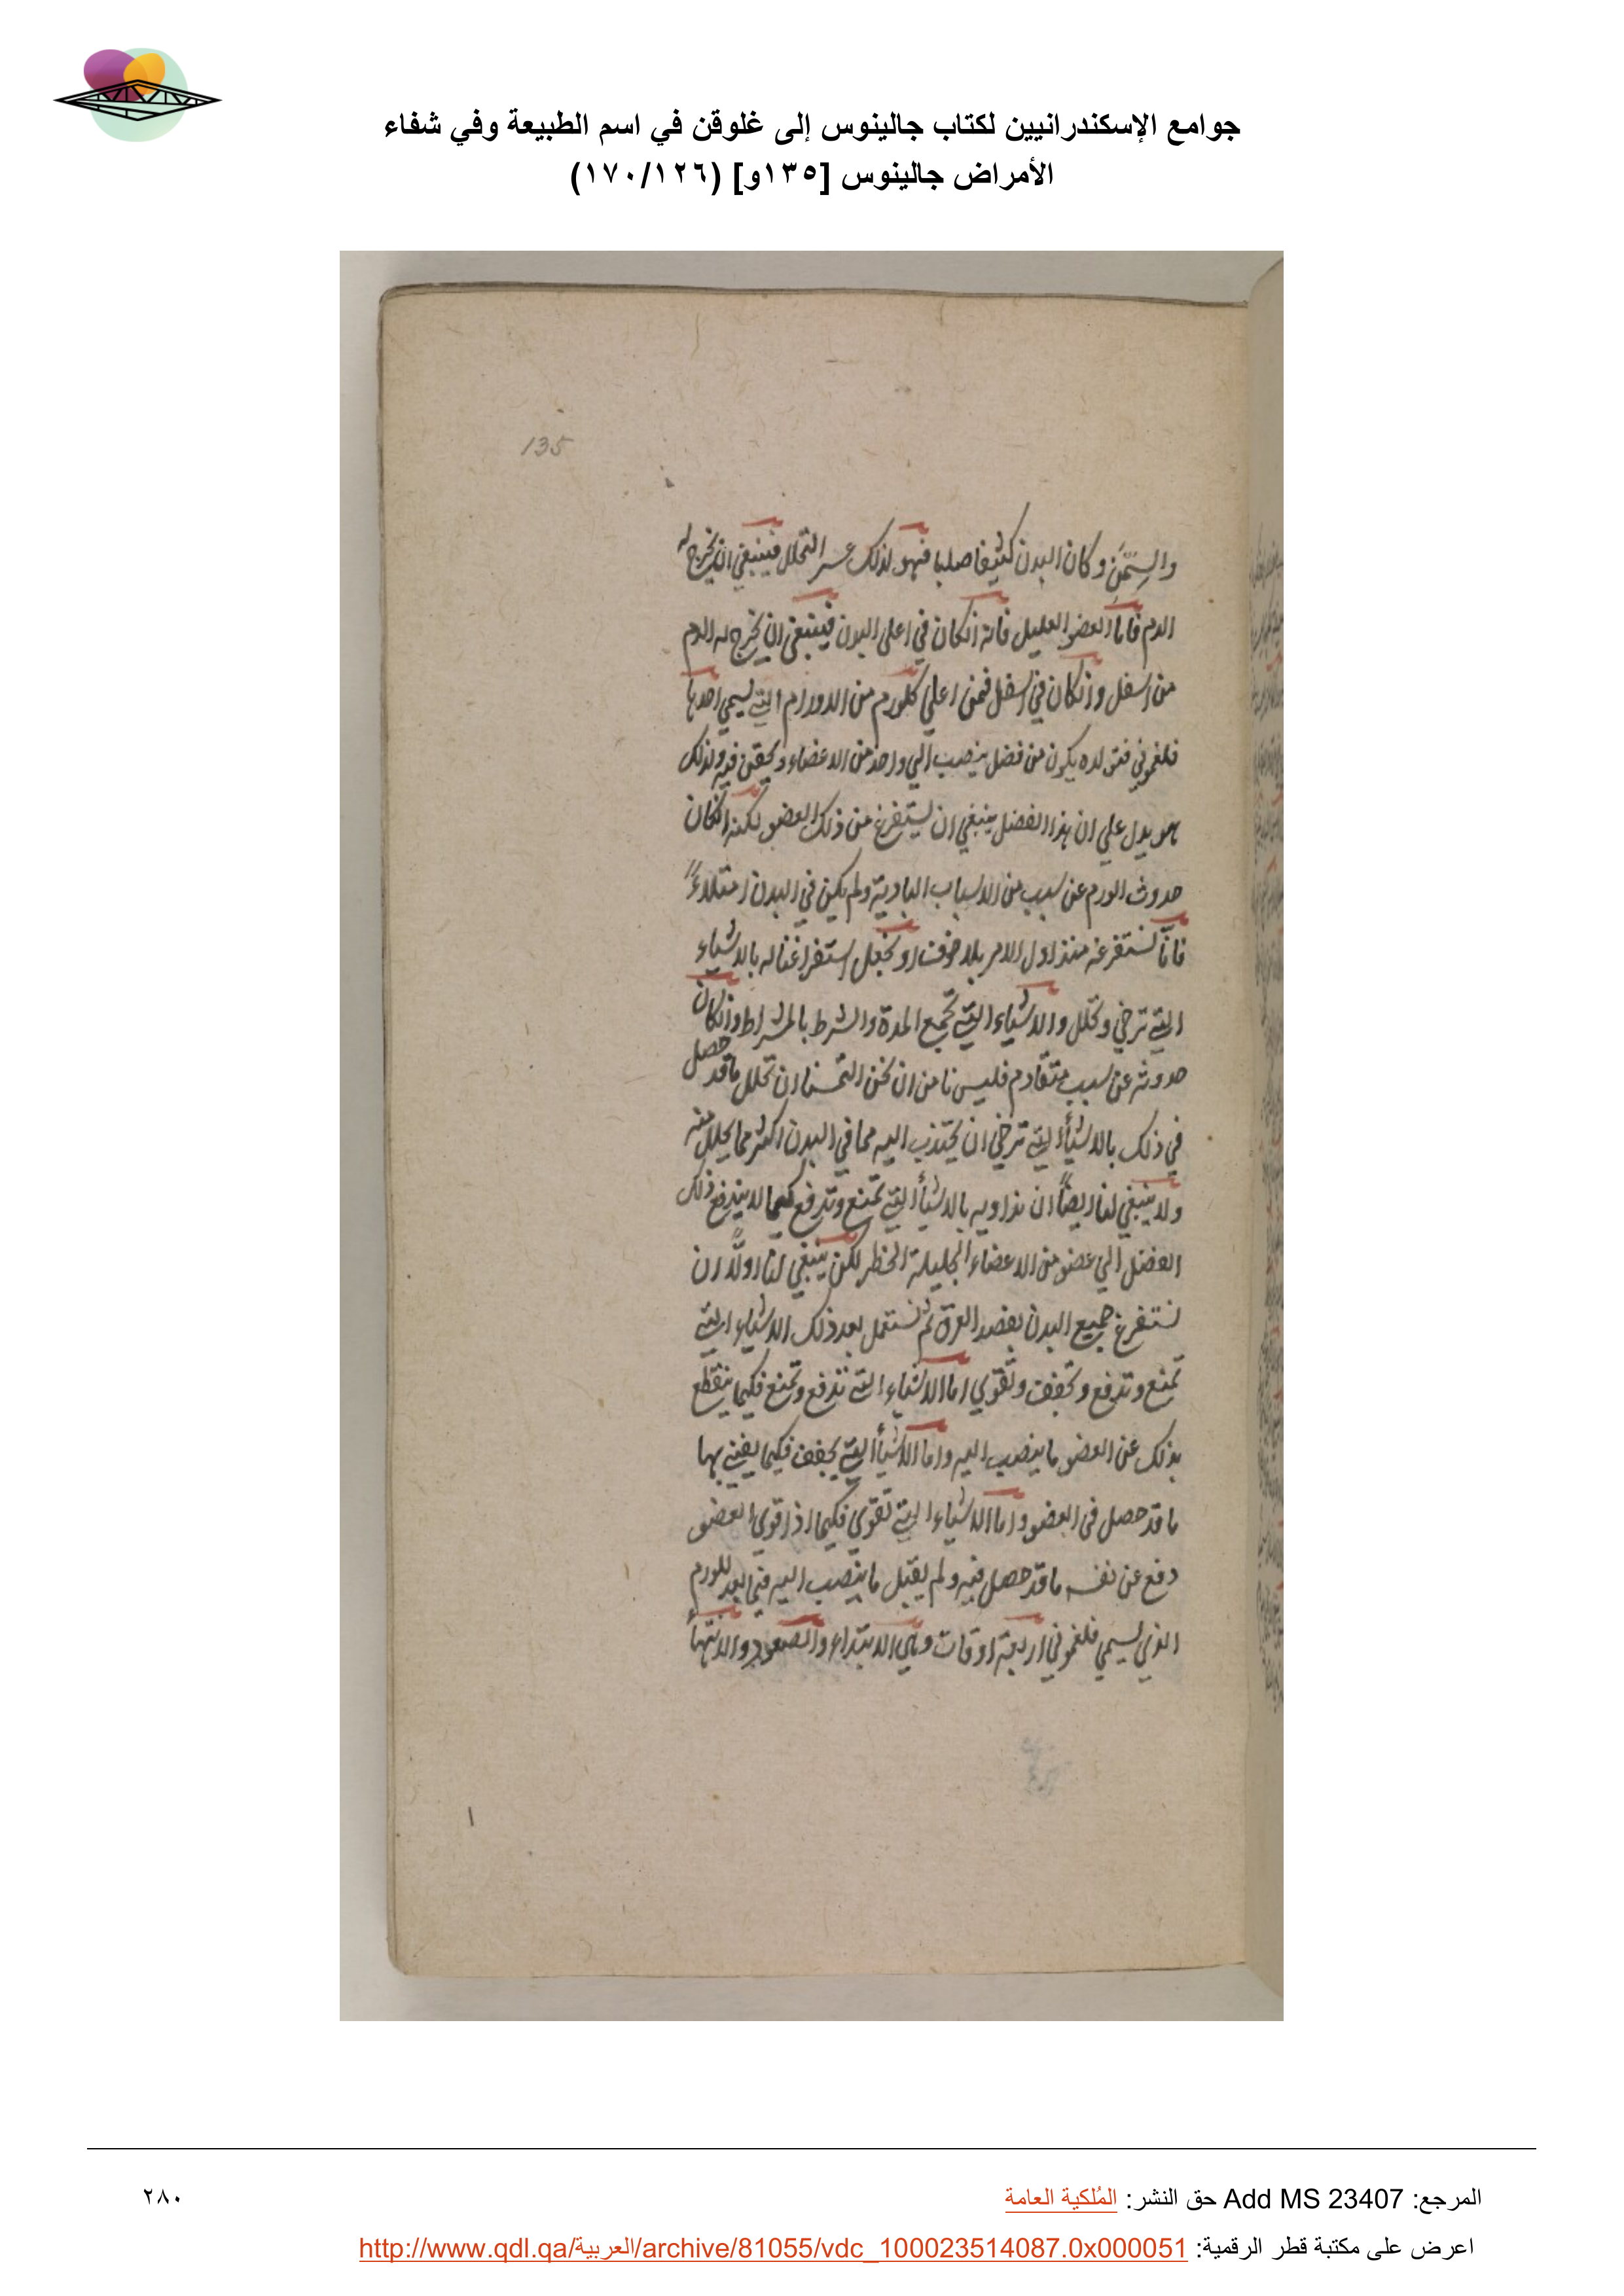 جوامع الإسكندرانيين لكتاب جالينوس إلى غلوقن في اسم الطبيعة وفي شفاء
الأمراض جالينوس [١٣٥و] (١٧٠/١٢٦)
135
والسمن وكان البدن كثيفا صلبا فهو لذلك عسر التحلل فينبغي ان يخرج له
الدم فاما العضو العليل فانه انكان في اعلى البدن فينبغي ان يخرج له الدم
من اسفل وانكان في اسفل فمن اعلي كلورم من الاورام التي يسمي احدها
فلغموني فتولده يكون من فضل ينصب الي واحد من الاعضاء ويحقن فيه ولذلك
هو يدل علي ان هذا الفضل ينبغي ان يستفرغ من ذلك العضو لكنه انكان
حدوث الورم عن سبب من الاسباب البادية ولم يكن في البدن امتلاءً
فانّا نستفرغه منذ اول الامر بلا خوف ونجعل استفراغنا له بالاشياء
التي ترخي وتحلل والاشياء التي تجمع المدة والشرط بالمشراط وانكان
حدوثه عن سبب متقادم فليس نامن ان نحن التمسنا ان نحلل ما قد حصل
في ذلك بالاشيأ التي ترخي ان يجتذب اليه مما في البدن اكثر مما يحلل منه
ولا ينبغي لنا ايضاً ان نداويه بالاشيأ التي تمنع وتدفع كيما لا يندفع ذلك
الفضل الي عضو من الاعضاء الجليلة الخطر لكن ينبغي لنا اولاً ان
نستفرغ جميع البدن بفصد العرق ثم نستعمل بعد ذلك الاشياء التي
تمنع وتدفع وتجفف وتقوي اما الاشياء التي تدفع وتمنع فكيما ينقطع
بذلك عن العضو ما ينصب اليه واما الاشيأ التي يجفف فكيما يفني بها
ما قد حصل في العضو واما الاشياء التي تقوي فكيما اذا قوي العضو
دفع عن نفسه ما قد حصل فيه ولم يقبل ما ينصب اليه فيما بعد للورم
الذي يسمي فلغموني اربعة اوقات وهي الابتداء والصعود والانتهأ
المرجع: Add MS 23407 حق النشر: المُلكية العامة
٢٨٠
اعرض على مكتبة قطر الرقمية: http://www.qdl.qa/العربية/archive/81055/vdc_100023514087.0x000051